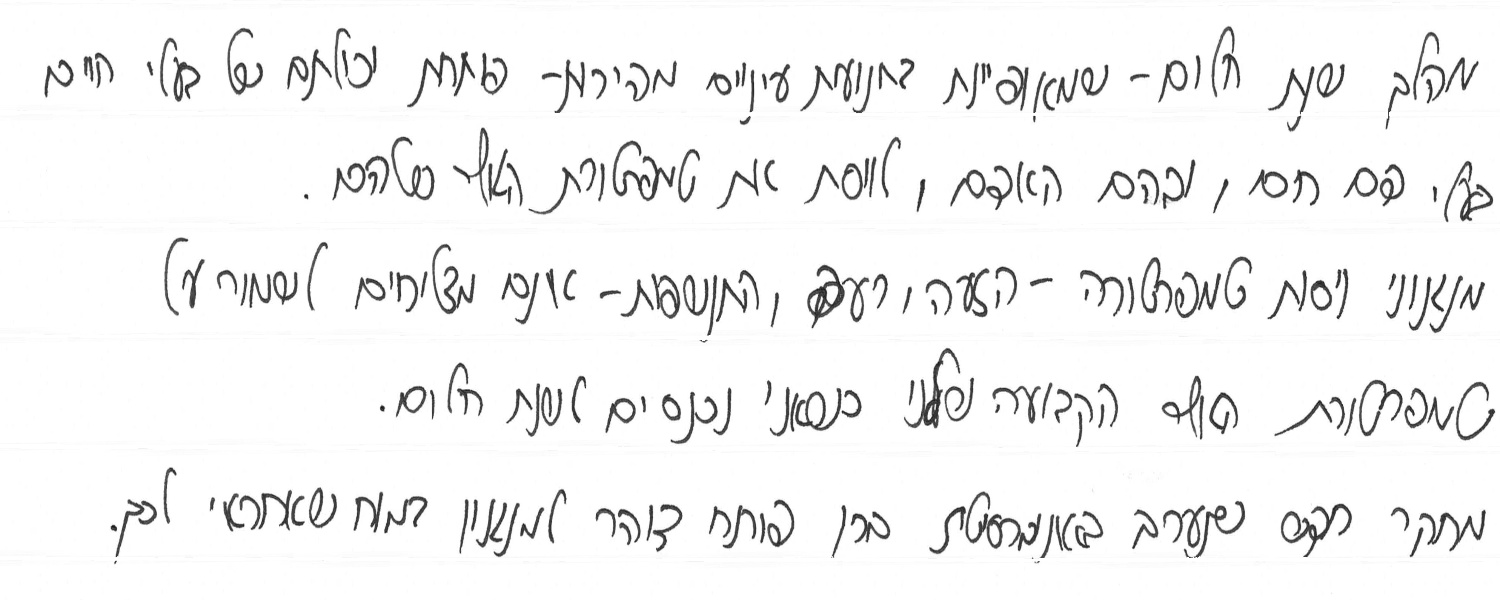 מהלך שנת חלום - שמאופיינת בתנועת עיניים מהירות - פוחתת יכולתם של בעלי חיים
בעלי דם חם, ובהם האדם, לווסת את טמפרטורת הגוף שלהם.
מנגנוני ויסות טמפרטורה - הזעה, רעד, התנשפות - אינם מצליחים לשמור על
טמפרטורת הגוף הקבועה שלנו כשאני נכנסים לשנת חלום.
מחקר חדש שנערך באוניברסיטת ברן פותח צוהר למנגנון במוח שאחראי לכך.